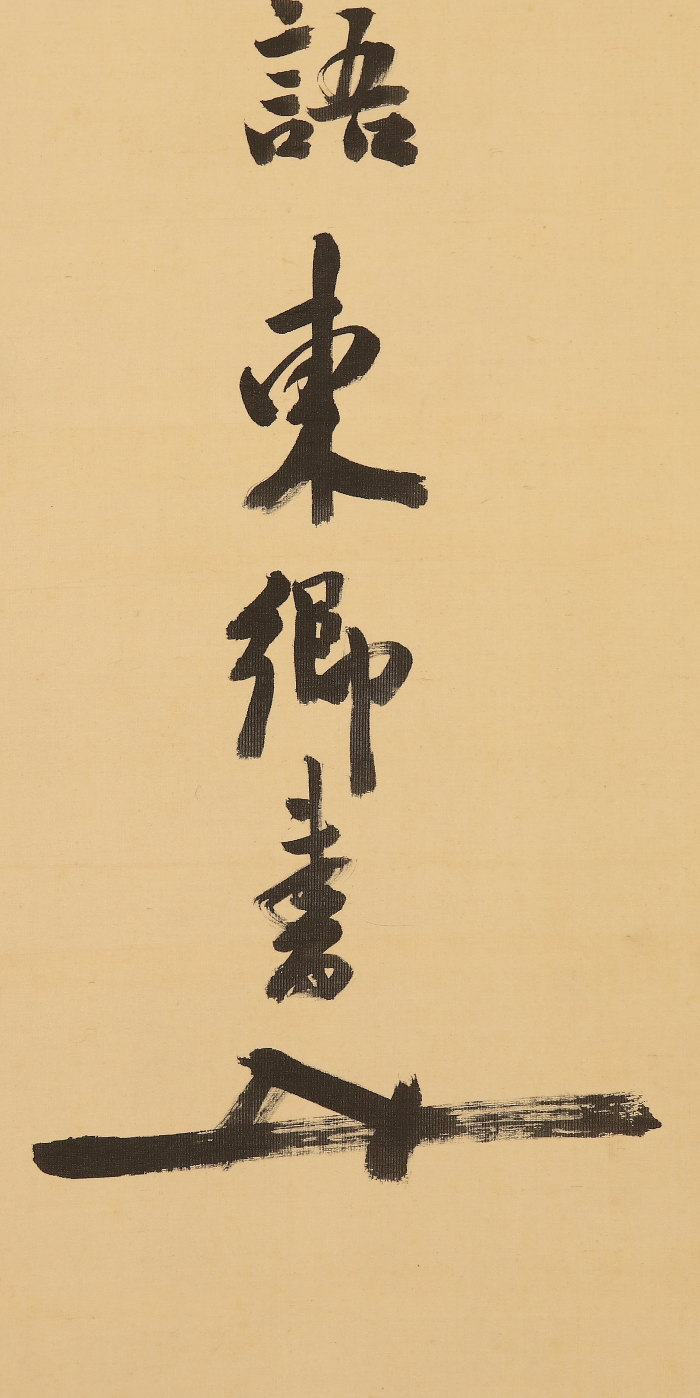 語東郷書